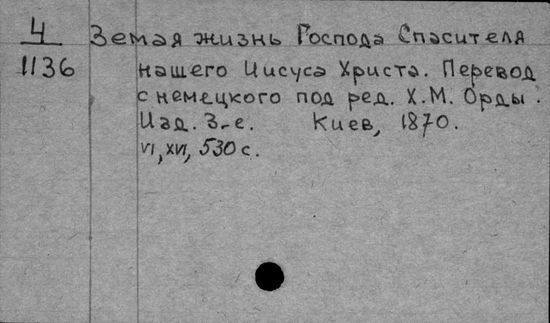 4 Земая жизнь Господа Спасителя
1136 нашего Иисуса Христа. Перевод
с немецкого под ред. Х.М. Орды.
Изд. 3-е. Киев, 1870.
VI, XVI, 530 с.